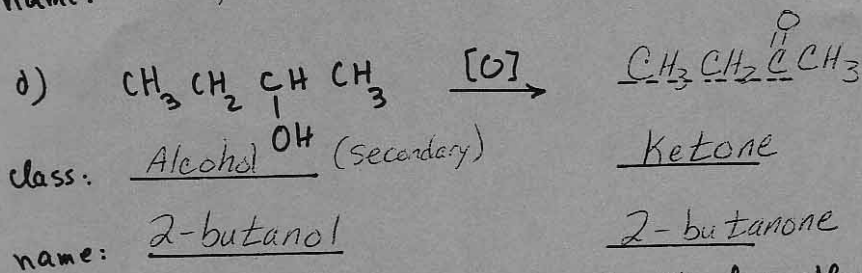 name:
O
||
d) CH₃ CH₂ CH CH₃ [O] → CH₃ CH₂ C CH₃
|
OH
class: Alcohol (secondary) Ketone
name: 2-butanol 2-butanone